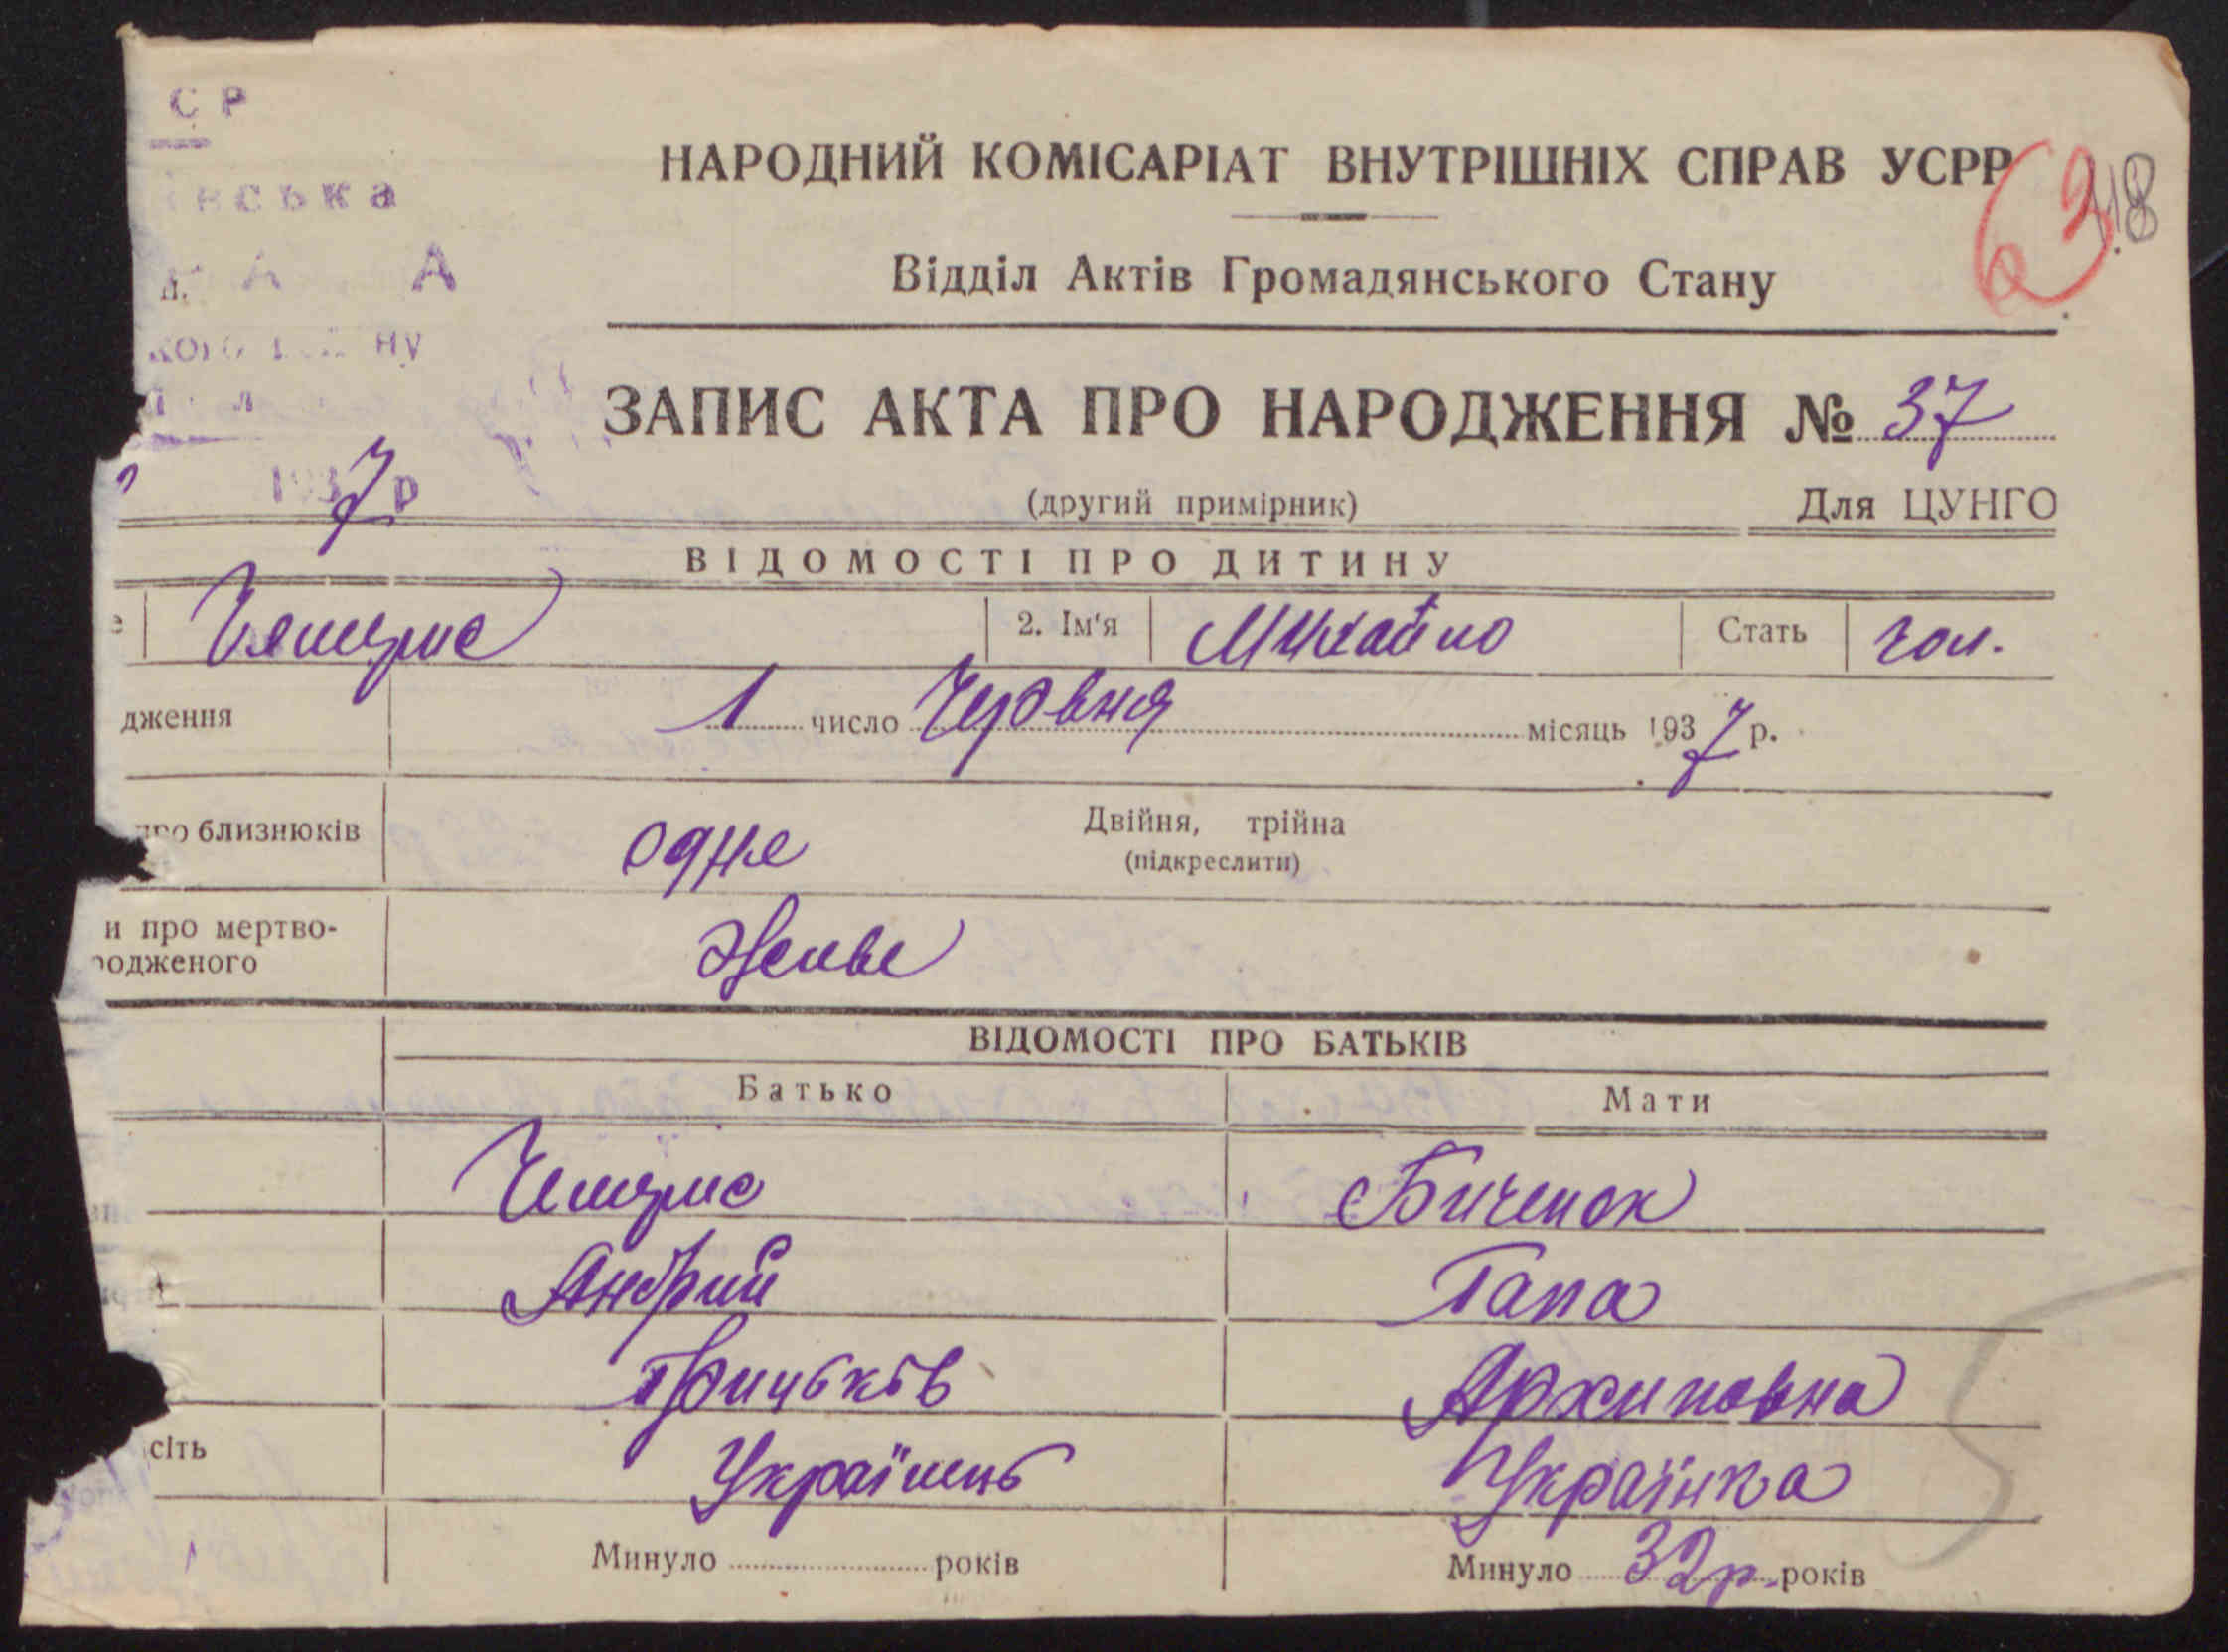 СР
нська
А А
ну
НАРОДНИЙ КОМІСАРІАТ ВНУТРІШНІХ СПРАВ УСРР
63
18
Відділ Актів Громадянського Стану
ЗАПИС АКТА ПРО НАРОДЖЕННЯ № 37
1937 р
(другий примірник) Для ЦУНГО
ВІДОМОСТІ ПРО ДИТИНУ
2. Ім'я Михайло Стать чол.
дження 1 число Червня місяць 1937 р.
про близнюків одне Двійня, трійна
(підкреслити)
и про мертво-
родженого Живе
ВІДОМОСТІ ПРО БАТЬКІВ
Батько Мати
Биченок
Андрий Гапа
Грицьків Архиповна
сіть Українець Українка
Минуло років Минуло 32р. років